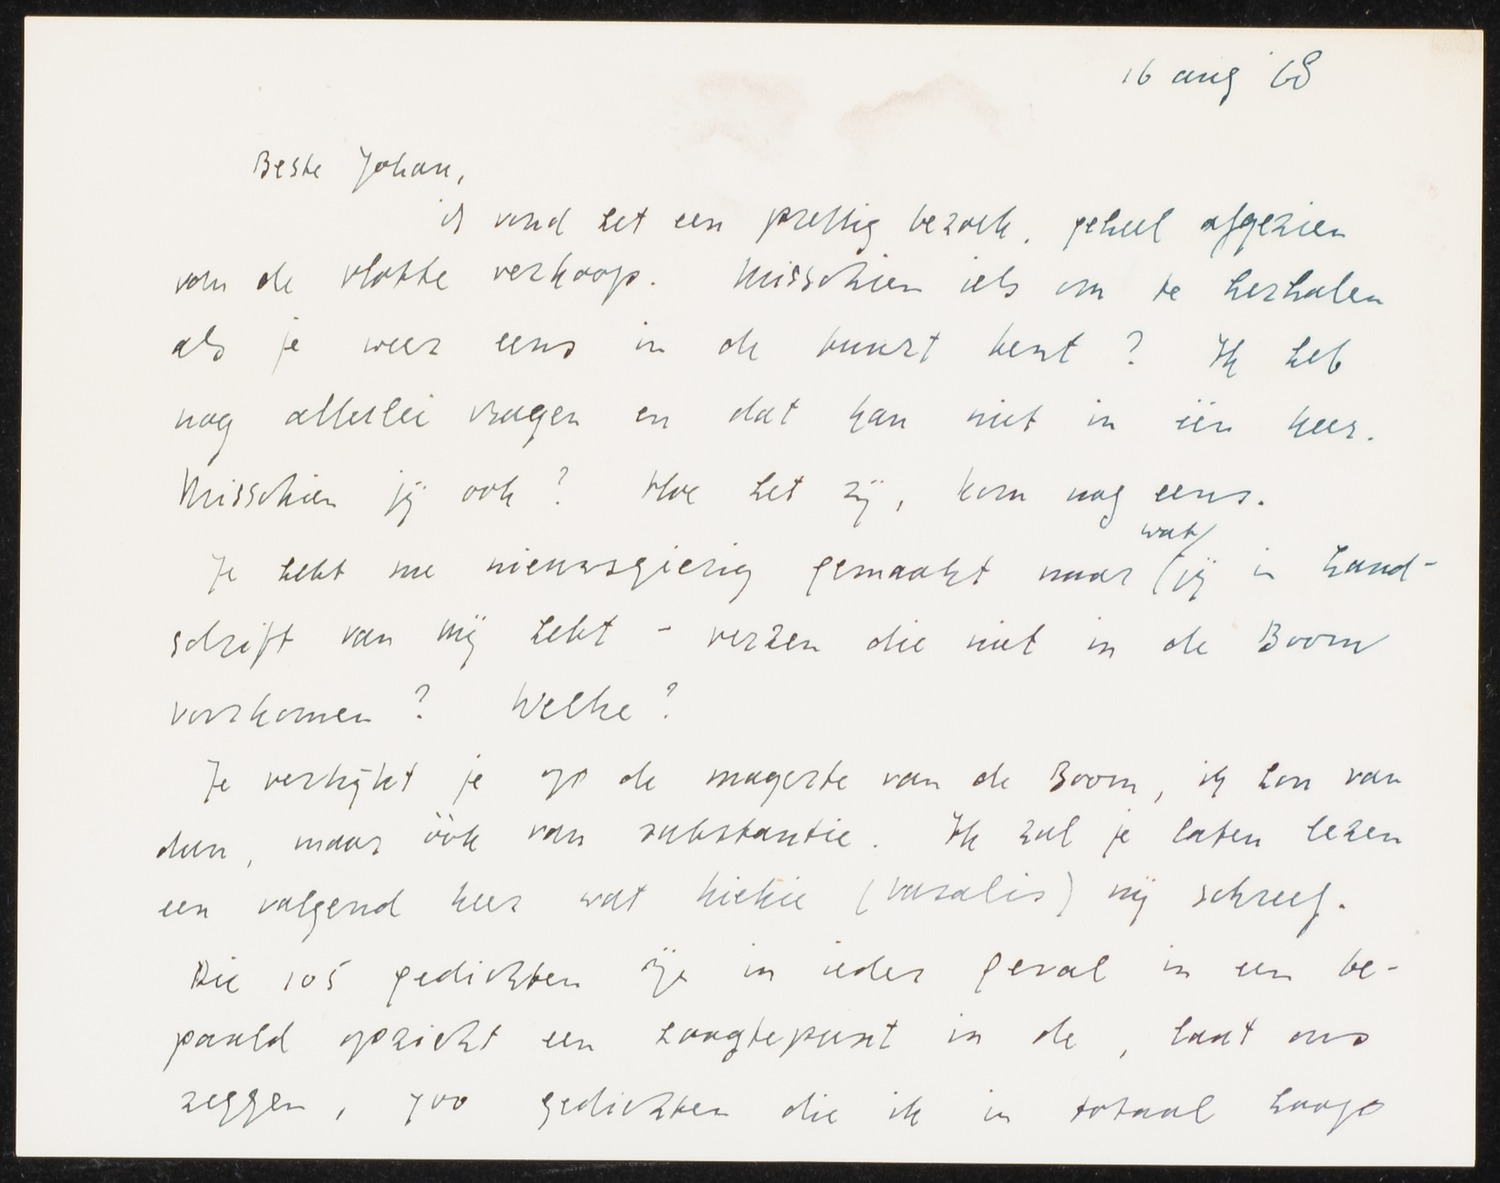 16 aug '68
Beste Johan,
ik vond het een prettig bezoek, geheel afgezien
van de vlotte verkoop. Misschien iets om te herhalen
als je weer eens in de buurt bent? Ik heb
nog allerlei vragen en dat kan niet in één keer.
Misschien jij ook? Hoe het zij, kom nog eens.
Je hebt me nieuwsgierig gemaakt naar wat jij in hand-
schrift van mij hebt - verzen die niet in de Boom
voorkomen? Welke?
Je verkijkt je op de magerte van de Boom, ik hou van
dun, maar óók van substantie. Ik zal je laten lezen
een volgend keer wat Kiekie (Vasalis) mij schreef.
Die 105 gedichten zijn in ieder geval in een be-
paald opzicht een hoogtepunt in de, laat ons
zeggen, 700 gedichten die ik in totaal hoop